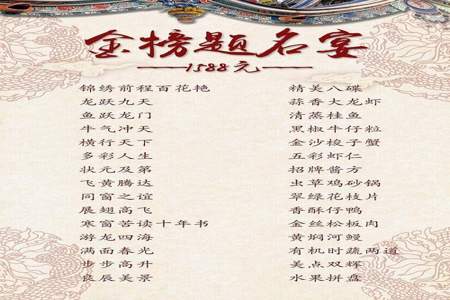 金榜题名宴
1588元
锦绣前程百花艳 精美八碟
龙跃九天 蒜香大龙虾
鱼跃龙门 清蒸桂鱼
牛气冲天 黑椒牛仔粒
横行天下 金沙梭子蟹
多彩人生 五彩虾仁
状元及第 招牌酱方
飞黄腾达 虫草鸡砂锅
同窗之谊 翠绿花枝片
展翅高飞 香酥仔鸭
寒窗苦读十年书 金丝松板肉
游龙四海 黄焖河鳗
满面春光 有机时蔬两道
步步高升 美点双辉
良辰美景 水果拼盘